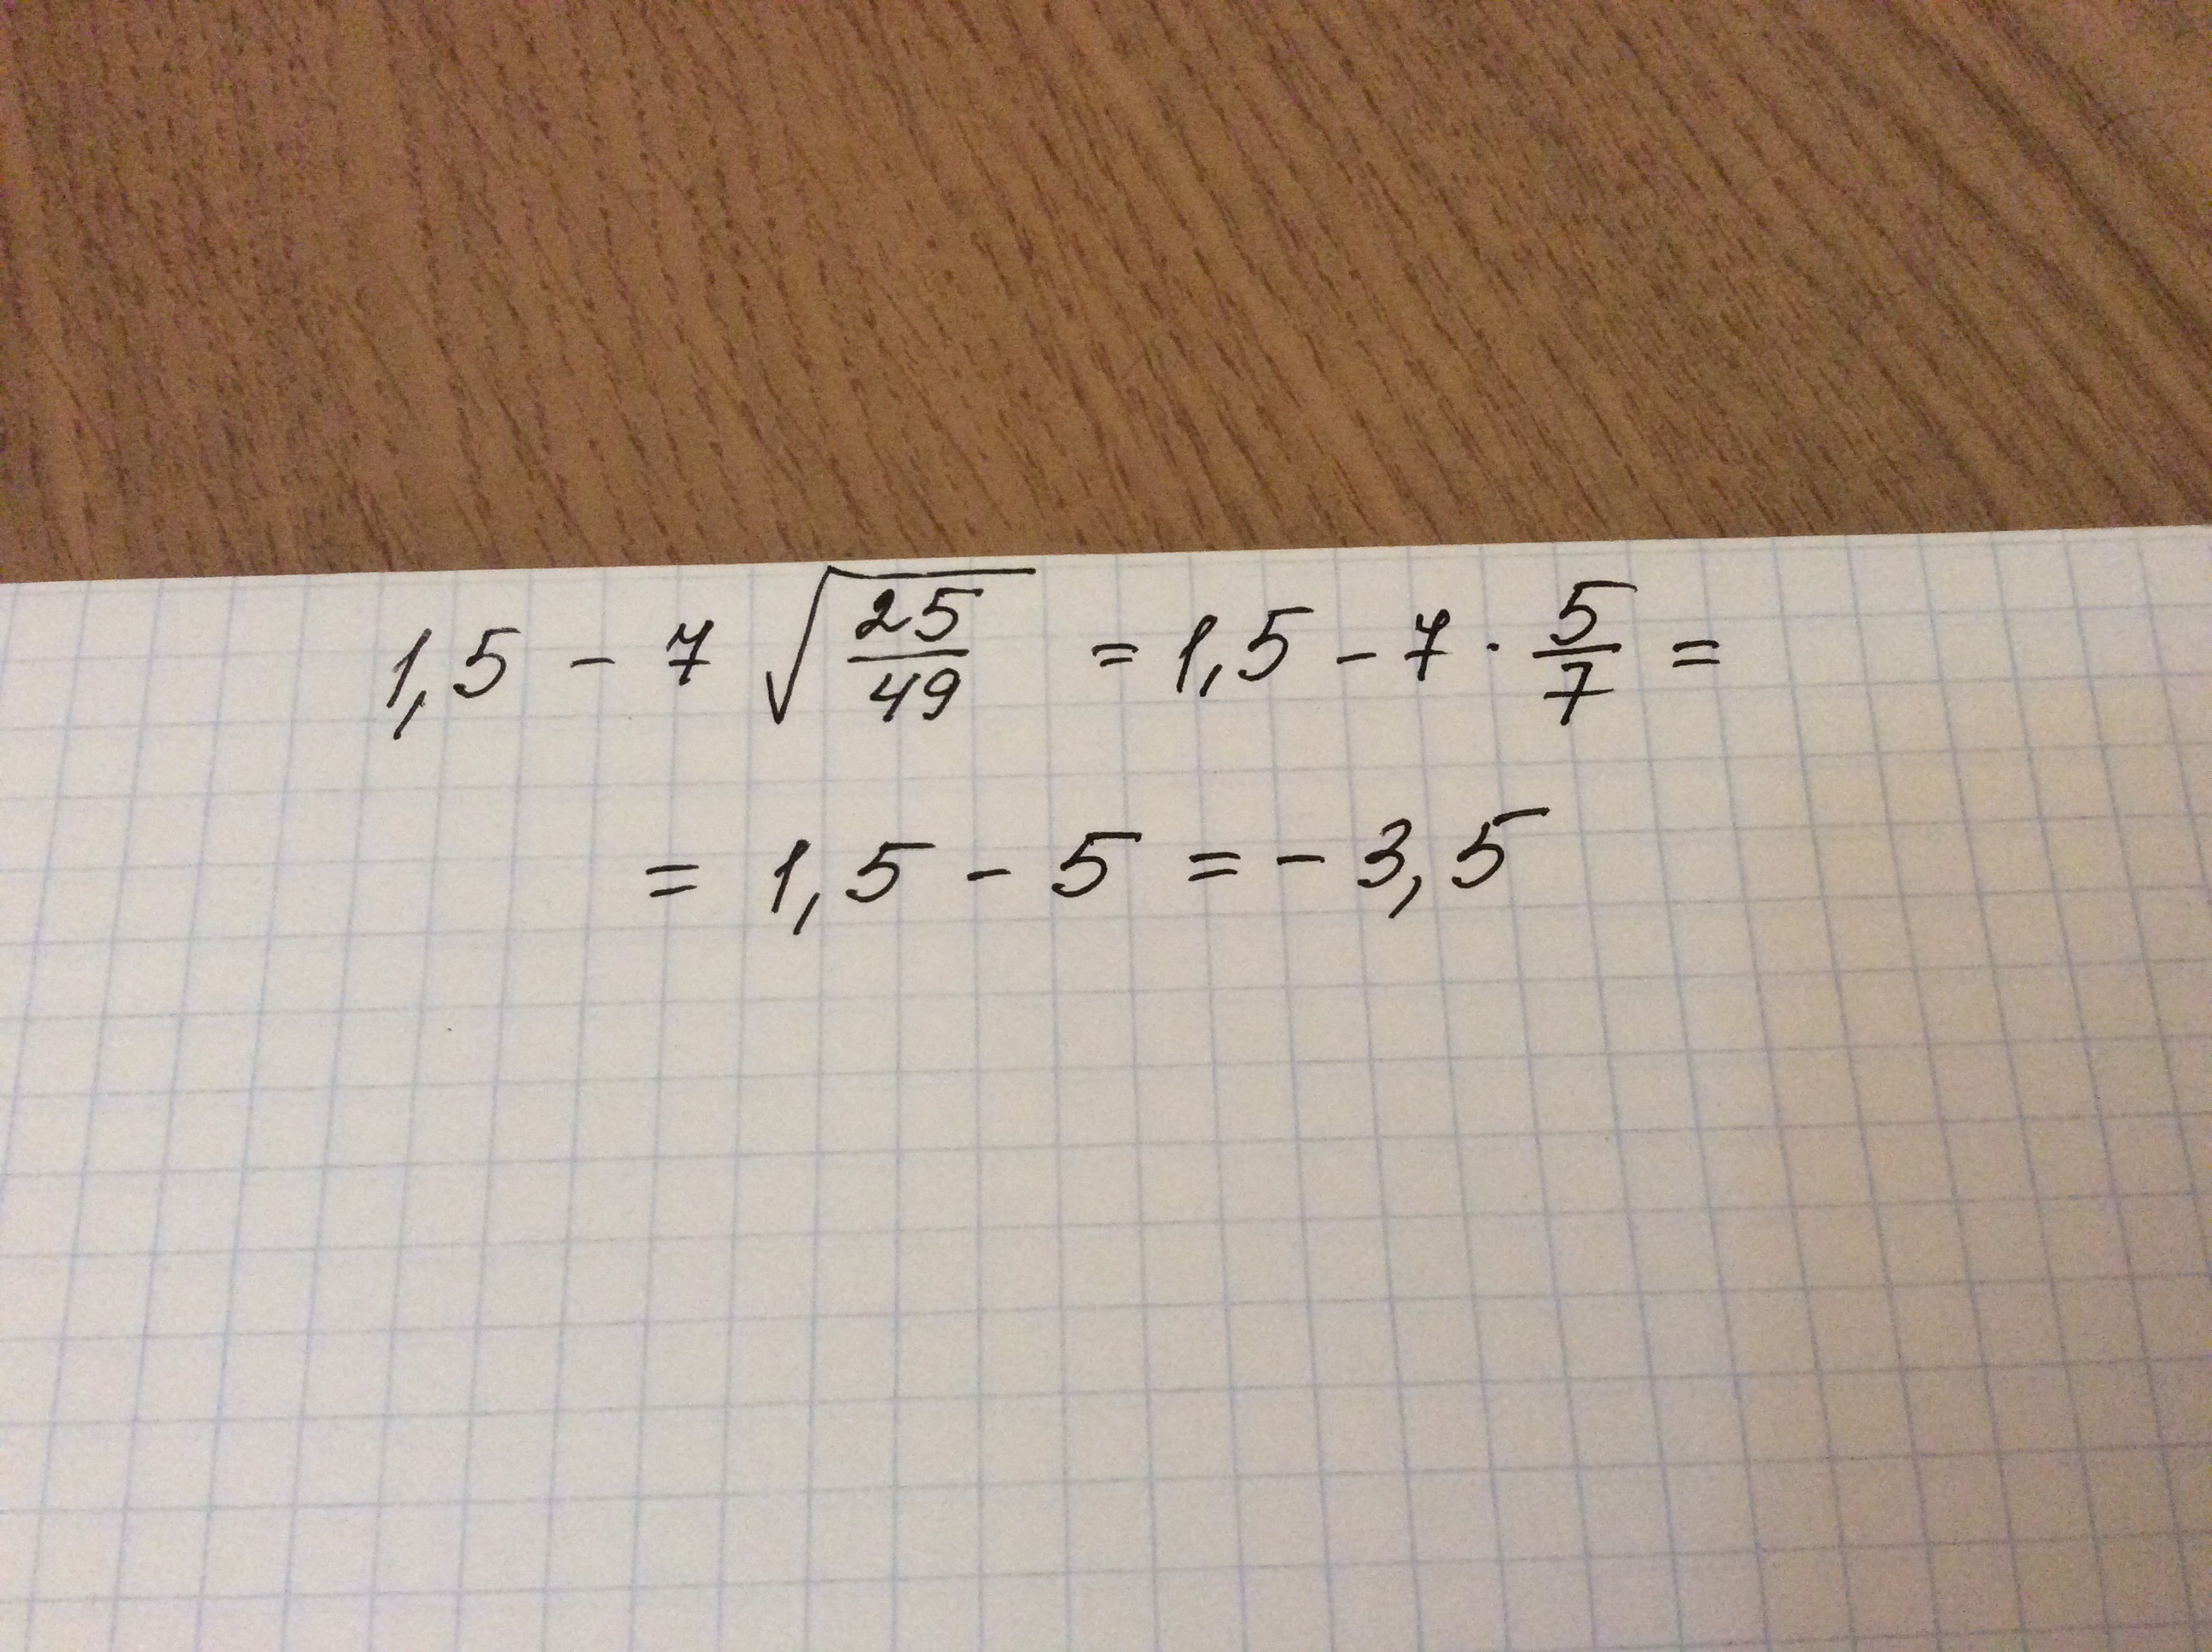 1,5 - 7 √(25/49) = 1,5 - 7 · 5/7 =
= 1,5 - 5 = - 3,5